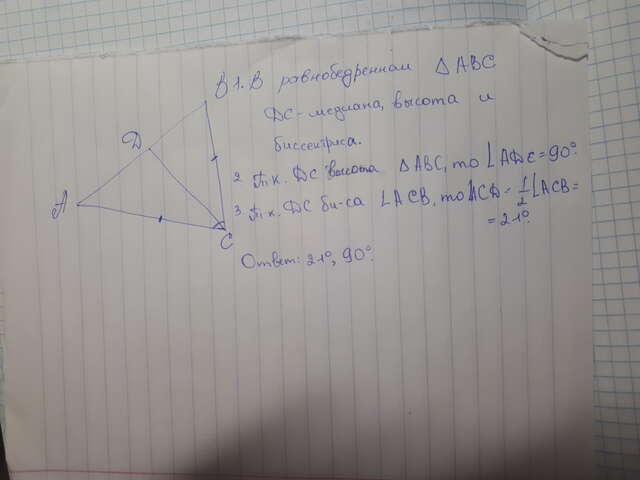 B
D
A
C
1. В равнобедренном △ABC
DC - медиана, высота и
биссектриса.
2 Т.к. DC высота △ABC, то ∠ADC = 90°.
3 Т.к. DC би-са ∠ACB, то ∠ACD = 1/2 ∠ACB =
= 21°.
Ответ: 21°, 90°.